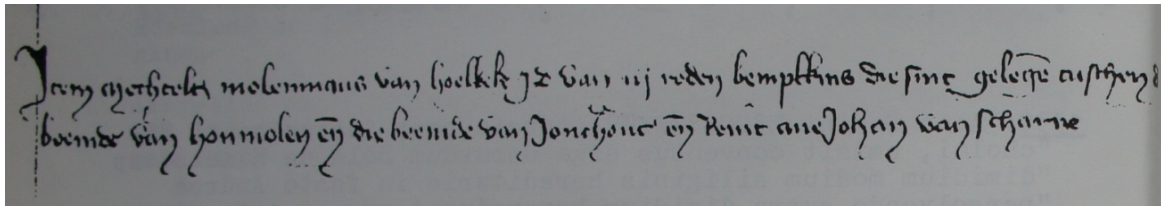 Item mechtelt molenmans van hoelbek j d van iij reden bemptkins die sint gelegē tuschen d
beemde van honmolen eñ die beemde van Jonchout eñ Reinť ane Johan van scharne